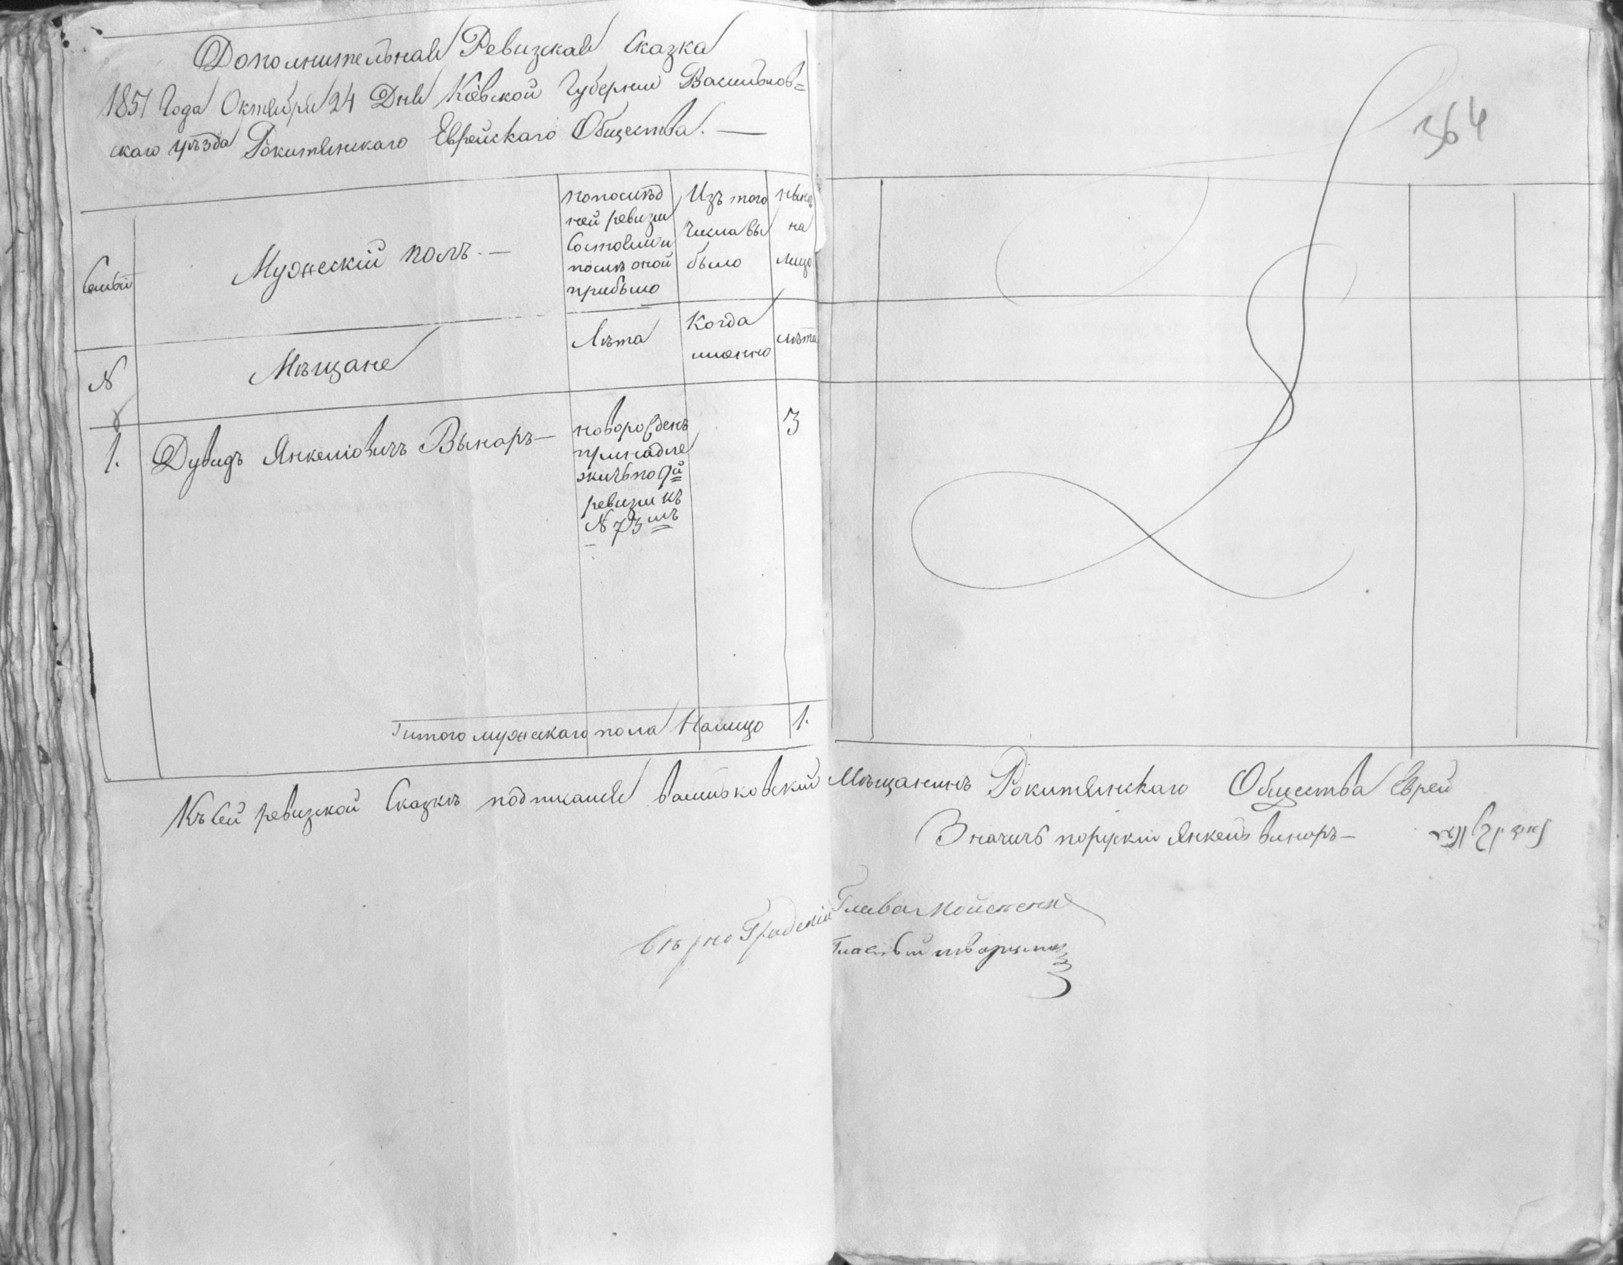 Дополнительная Ревизская Сказка
1851 Года Октября 24 Дня Кіевской Губерніи Васильков=
скаго уѣзда Рокитянскаго Еврейскаго Общества. —
364
Семьи
Мужескій полъ. —
По послѣд
ней ревизіи
Состояло и
послѣ оной
прибыло
Изъ того
числа вы
было
Нынѣ
на
лицо
№
Мѣщане
Лѣта
Когда
именно
лѣта
1.
Дувидъ Янкеліовичъ Вынаръ —
новорожденъ
принадле
житъ по 9й
ревизіи къ
№ 73мъ
3
Итого мужескаго пола Налицо 1.
Къ сей ревизской Сказкѣ подписался Васильковскій Мѣщанинъ Рокитянскаго Общества Еврей
Значитъ поруски Янкель Винаръ —
Вѣрно Градскій Глава
Гласный